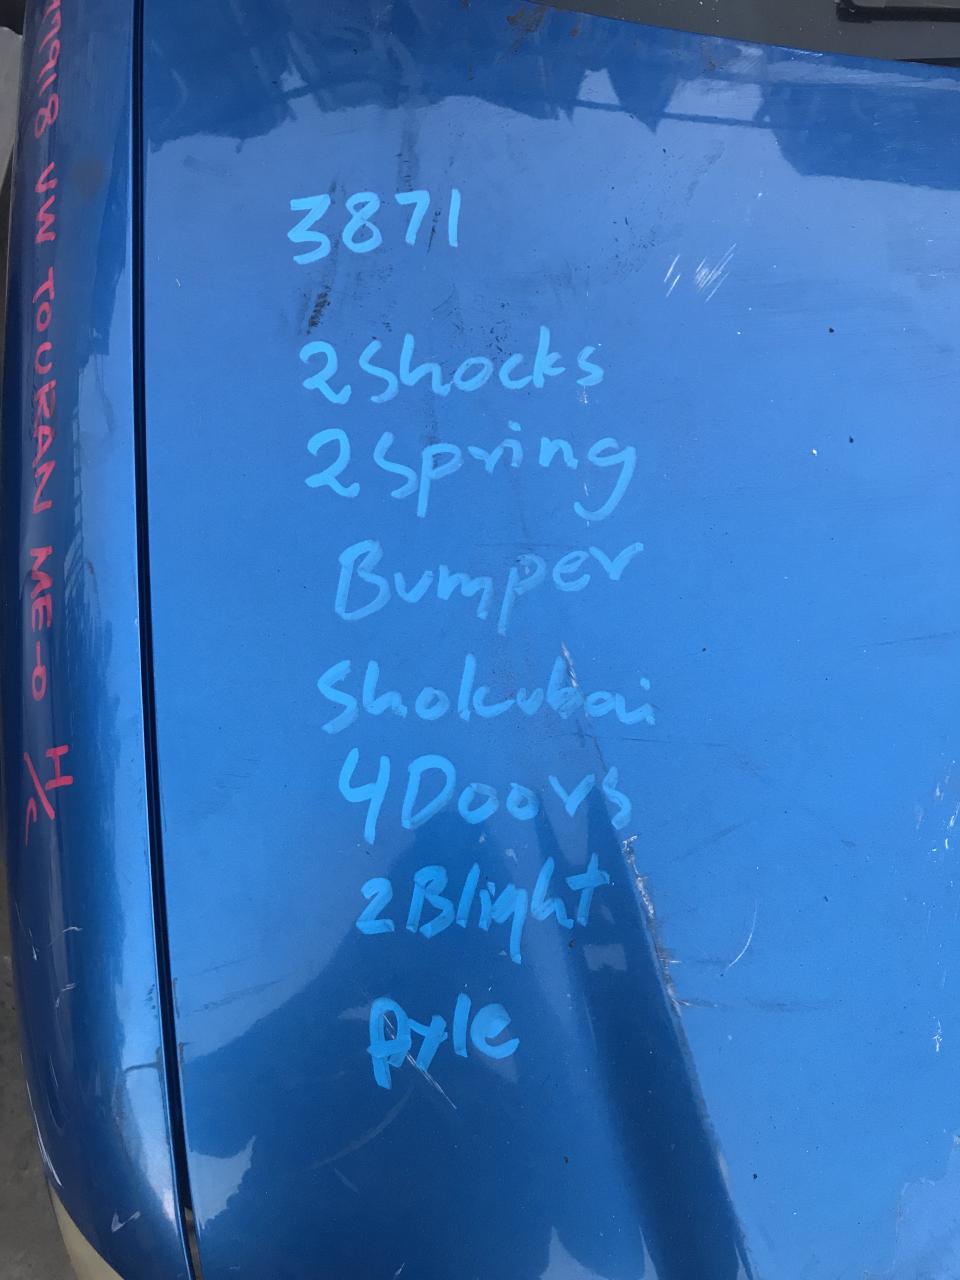 47918 VW TOURAN ME-0 H/C
3871
2 Shocks
2 Spring
Bumper
Shokubai
4 Doors
2 Blight
Ayle